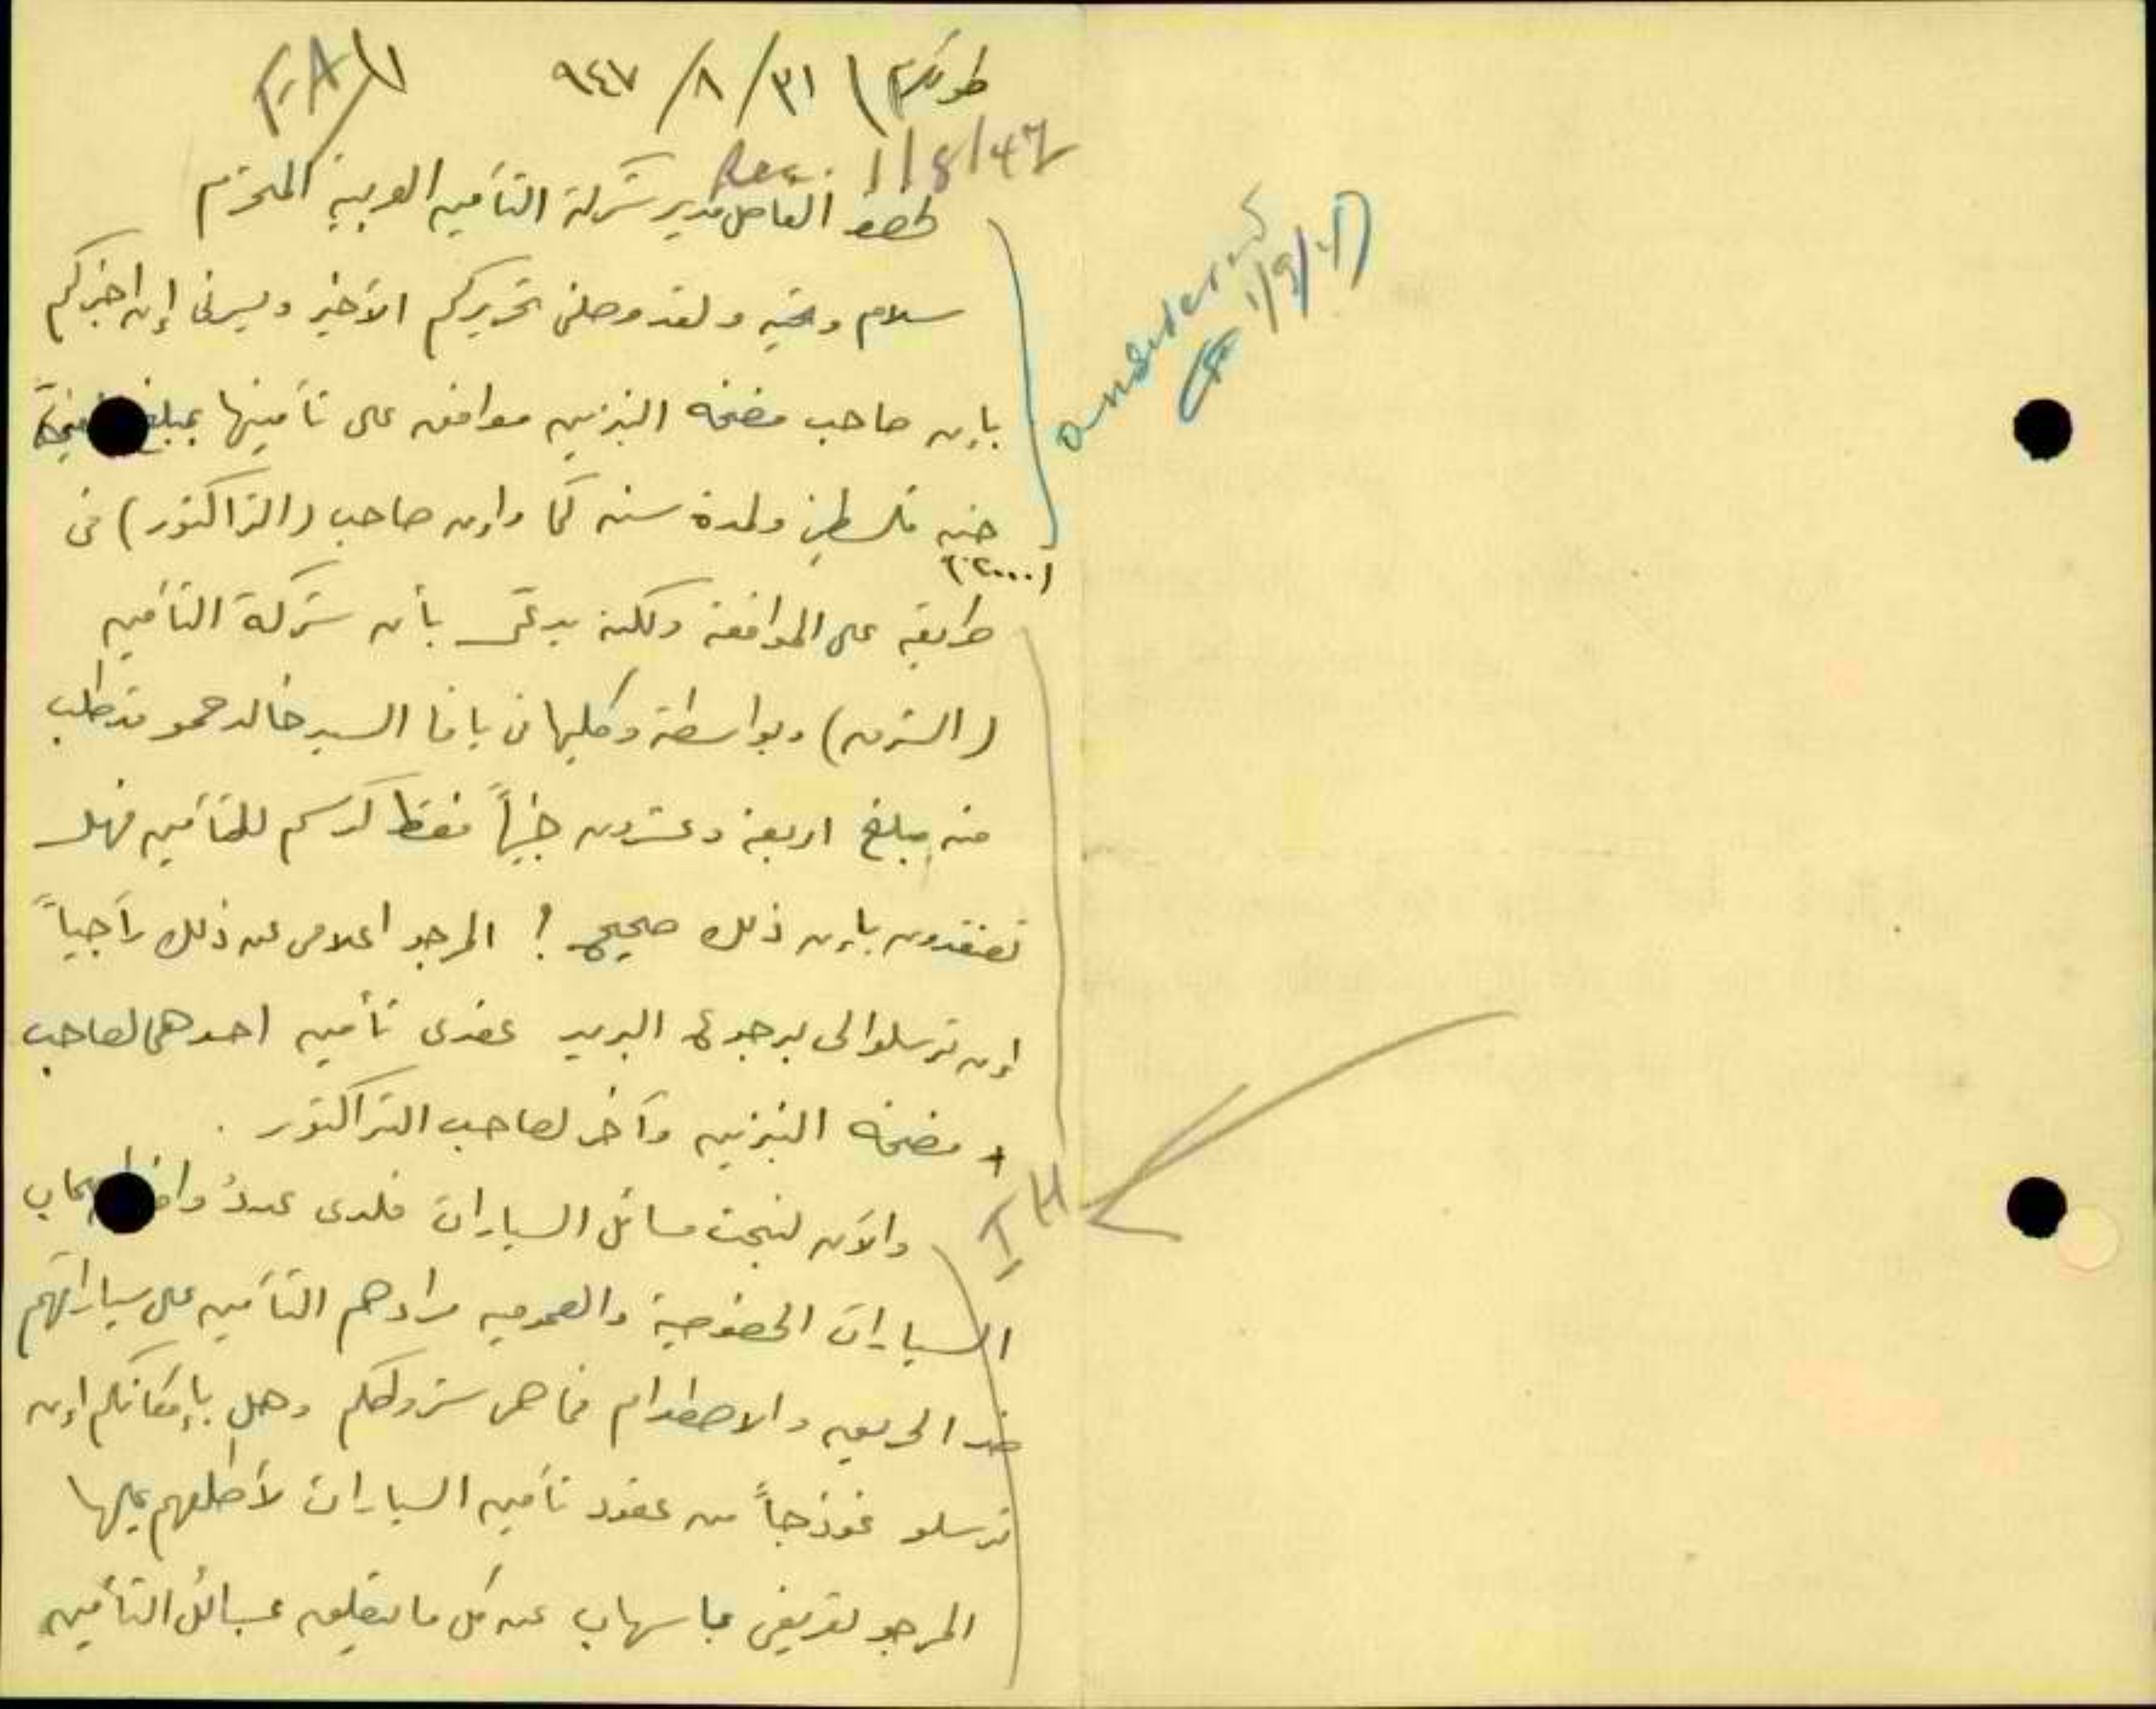 طولكرم \ ٣١/ ٨/ ٩٤٧
F.A
Rec. 1/8/47
حضرة الفاضل مدير شركة التأمين العربية المحترم
سلام وتحية ولقد وصلني تحريركم الأخير ويسرني إن اخبركم
answered
1/9/47
بإن صاحب مضخة البنزين موافق على تأمينها بمبلغ
جنيه فلسطيني ولمدة سنه كما وإن صاحب (التراكتور) في
(٢٠٠٠)
طريقه على الموافقة ولكنه يدعي بأن شركة التأمين
(الشرق) وبواسطة وكيلها في يافا السيد خالد حمو قد طلب
منه مبلغ اربعة وعشرون جنيهاً فقط كرسم للتأمين فهل
تعتقدون بإن ذلك صحيح ! المرجو اعلامي عن ذلك رآجياً
إن ترسلوا لي برجوع البريد عقدي تأمين احدهما لصاحب
+ مضخة البنزين وآخر لصاحب التراكتور .
والآن لنبحث مسائل السيارات فلدي عددُ
السيارات الخصوصية والعمومية مرادهم التأمين على سياراتهم
ضد الحريق والاصطدام فما هي شروطكم وهل بإمكانكم إن
ترسلو نموذجاً من عقود تأمين السيارات لأطلعهم عليها
المرجو تعريفي بإسهاب عن كل ما يتعلق بمسائل التأمين